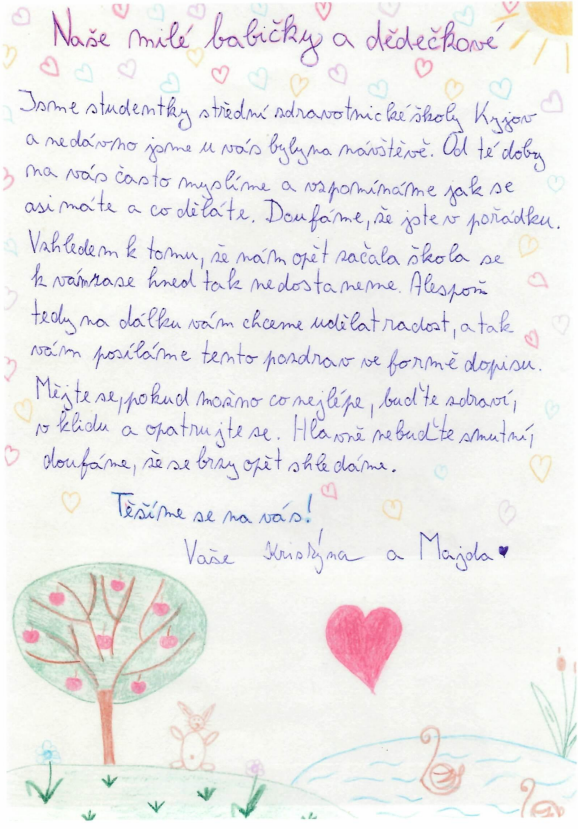 Naše milé babičky a dědečkové
Jsme studentky střední zdravotnické školy Kyjov
a nedávno jsme u vás byly na návštěvě. Od té doby
na vás často myslíme a vzpomínáme jak se
asi máte a co děláte. Doufáme, že jste v pořádku.
Vzhledem k tomu, že nám opět začala škola se
k vám zase hned tak nedostaneme. Alespoň
tedy na dálku vám chceme udělat radost, a tak
vám posíláme tento pozdrav ve formě dopisu.
Mějte se, pokud možno co nejlépe, buďte zdraví,
v klidu a opatrujte se. Hlavně nebuďte smutní,
doufáme, že se brzy opět shledáme.
Těšíme se na vás!
Vaše Kristýna a Majda